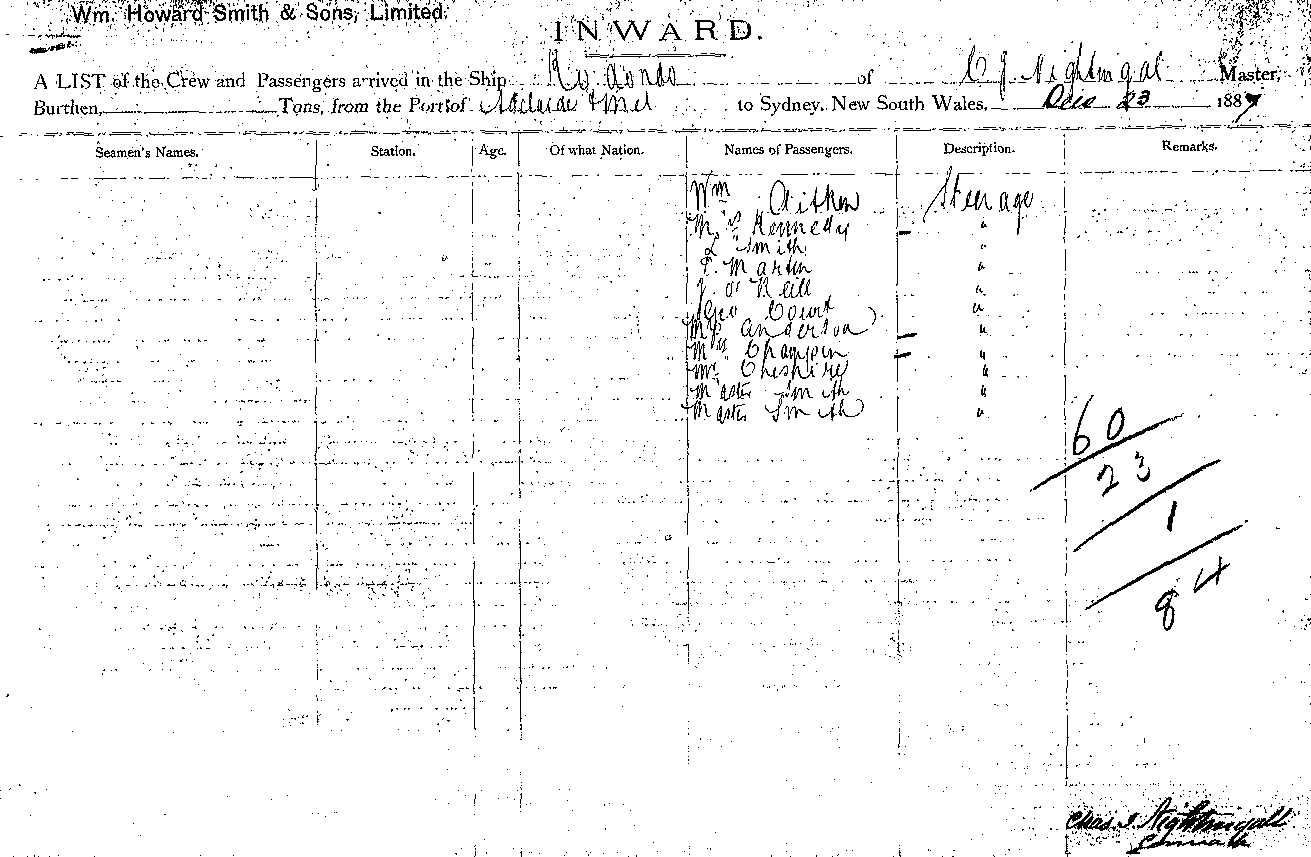 Wm. Howard Smith & Sons, Limited.
INWARD.
A LIST of the Crew and Passengers arrived in the Ship Rodondo of C J Nightingal Master,
Burthen, Tons, from the Port of Adelaide & Mel to Sydney, New South Wales, Dec 23 1887
Seamen's Names. Station. Age. Of what Nation. Names of Passengers. Description. Remarks.
Wm Aitken Steerage
Mrs Kennedy "
L Smith "
T. Martin "
J. O'Neill "
Geo Court "
Mrs Anderson "
Mrs Champin "
Mr Cheshire "
Master Smith "
Master Smith "
60
23
1
84
Chas. J. Nightingall